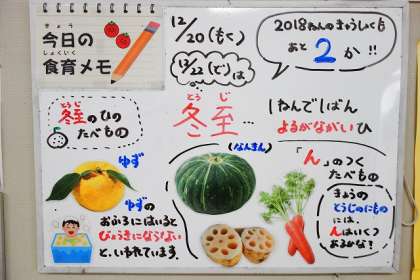 きょう
今日の
しょくいく
食育メモ
12/20(もく)
12/22(ど)は
2018ねんのきゅうしょくも
あと 2 か!!
とうじ
冬至…
1ねんでいちばん
よるがながいひ
とうじ
冬至のひの
たべもの
ゆず
ゆずの
おふろにはいると
びょうきにならない
と、いわれています。
(なんきん)
「ん」のつく
たべもの
きょうの
とうじのにもの
には、
んはいくつ
あるかな?